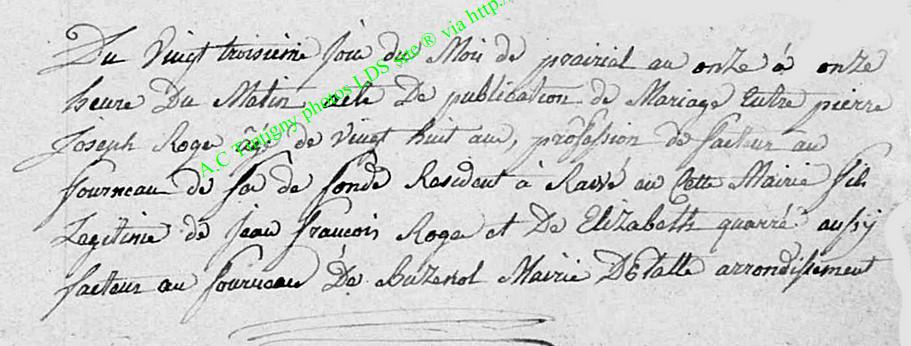 Du vingt troisieme jour du Mois de prairial an onze à onze
heure Du Matin acte De publication de Mariage Entre pierre
Joseph Roge agé de vingt huit ans, profession de facteur au
fourneau de de fonde Resident à au Cette Mairie fils
Legitime de jean francois Roge et De Elizabeth quarré aussy
facteur au fourneau De Buzenol Mairie DEtalle arrondissement
A.C Tintigny photos LDS site ® via http:/